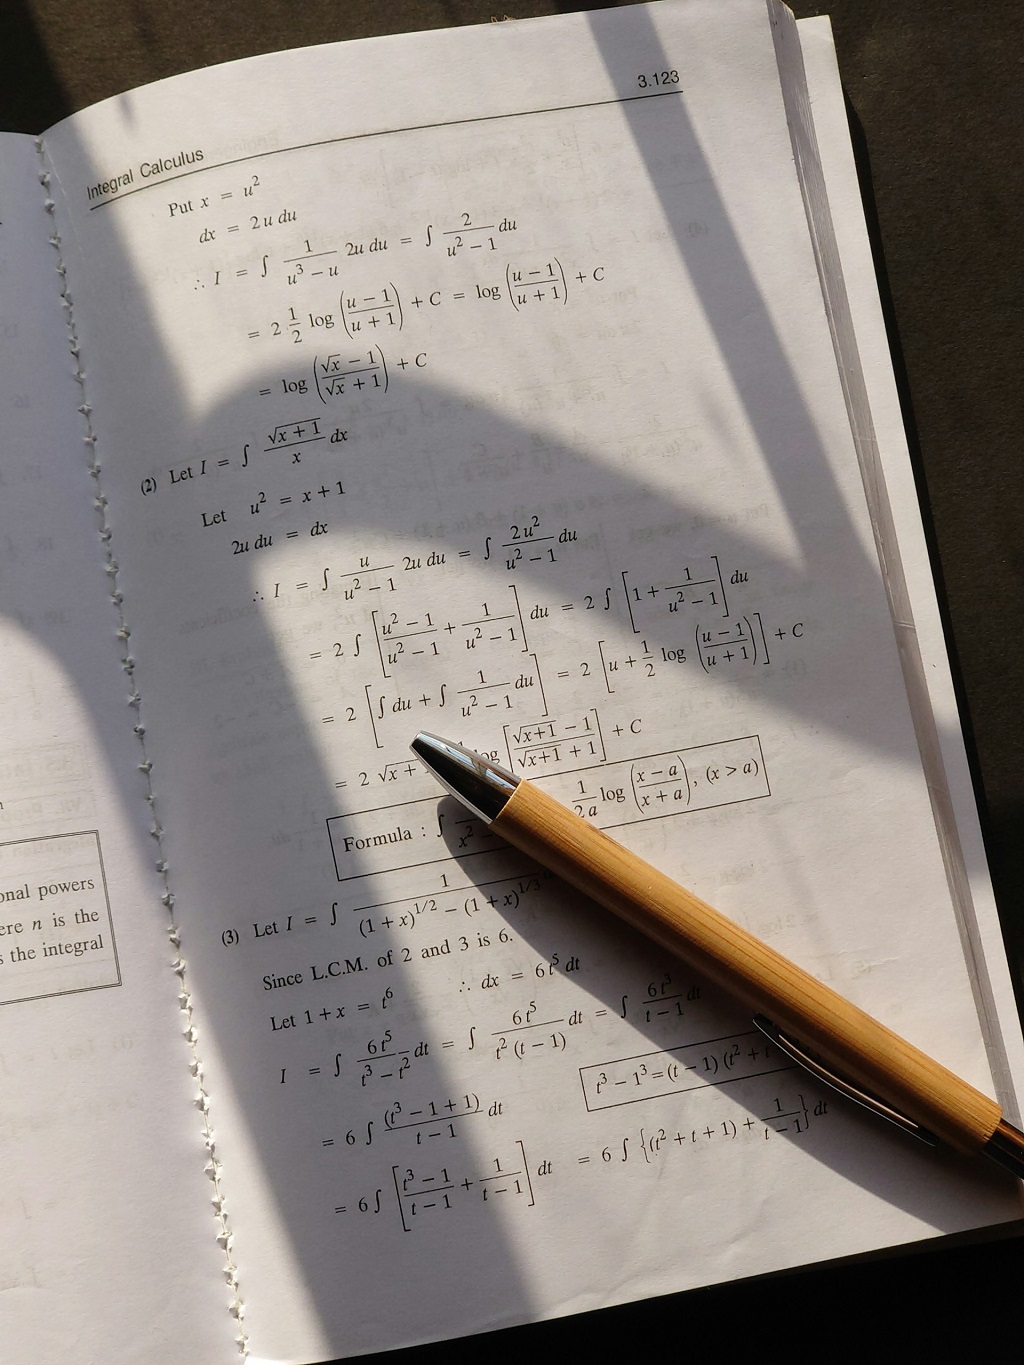 onal powers
ere n is the
s the integral
Integral Calculus 3.123
Put x = u²
dx = 2u du
∴ I = ∫ 1/(u³ − u) 2u du = ∫ 2/(u² − 1) du
= 2 1/2 log ((u − 1)/(u + 1)) + C = log ((u − 1)/(u + 1)) + C
= log ((√x − 1)/(√x + 1)) + C
(2) Let I = ∫ √(x + 1)/x dx
Let u² = x + 1
2u du = dx
∴ I = ∫ u/(u² − 1) 2u du = ∫ 2u²/(u² − 1) du
= 2 ∫ [(u² − 1)/(u² − 1) + 1/(u² − 1)] du = 2 ∫ [1 + 1/(u² − 1)] du
= 2 [∫ du + ∫ 1/(u² − 1) du] = 2 [u + 1/2 log ((u − 1)/(u + 1))] + C
= 2 √x + og [(√(x+1) − 1)/(√(x+1) + 1)] + C
Formula : ∫ x² 1/2a log ((x − a)/(x + a)), (x > a)
(3) Let I = ∫ 1/((1 + x)^1/2 − (1 + x)^1/3
Since L.C.M. of 2 and 3 is 6.
Let 1 + x = t⁶ ∴ dx = 6t⁵ dt
I = ∫ 6t⁵/(t³ − t²) dt = ∫ 6t⁵/(t² (t − 1)) dt = ∫ 6t³/(t − 1) dt
t³ − 1³ = (t − 1) (t² + t
= 6 ∫ (t³ − 1 + 1)/(t − 1) dt
= 6 ∫ [(t³ − 1)/(t − 1) + 1/(t − 1)] dt = 6 ∫ {(t² + t + 1) + 1/(t − 1)} dt